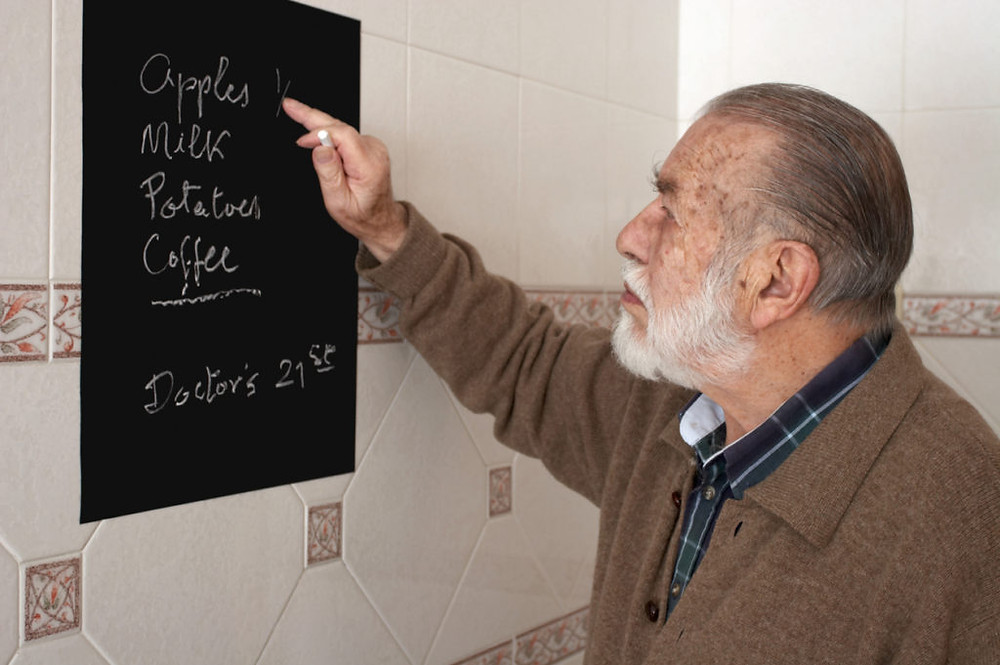 Apples 1/
Milk
Potatoes
Coffee
Doctor's 21st